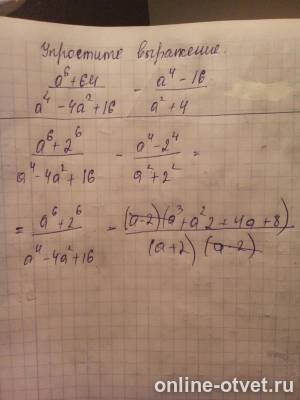 Упростите выражение.
(a⁶+64)/(a⁴-4a²+16) - (a⁴-16)/(a²+4)
(a⁶+2⁶)/(a⁴-4a²+16) - (a⁴-2⁴)/(a²+2²) =
= (a⁶+2⁶)/(a⁴-4a²+16) - (a-2)(a³+a²2+4a+8)/(a+2)(a-2)
online-otvet.ru